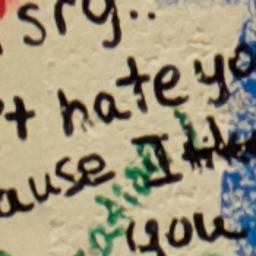 srg..
't hate yo
ause I
you